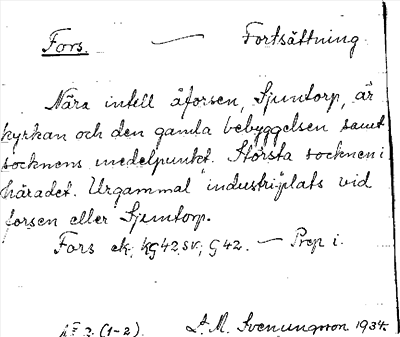 Fors. — Fortsättning
Nära intill åforsen, Sjuntorp, är
kyrkan och den gamla bebyggelsen samt
socknens medelpunkt. Största socknen i
häradet. Urgammal industriplats vid
forsen eller Sjuntorp.
Fors ek, kg 42 sv, g 42. — Prep i.
3. (1-2). L. M. Svenungsson 1934.